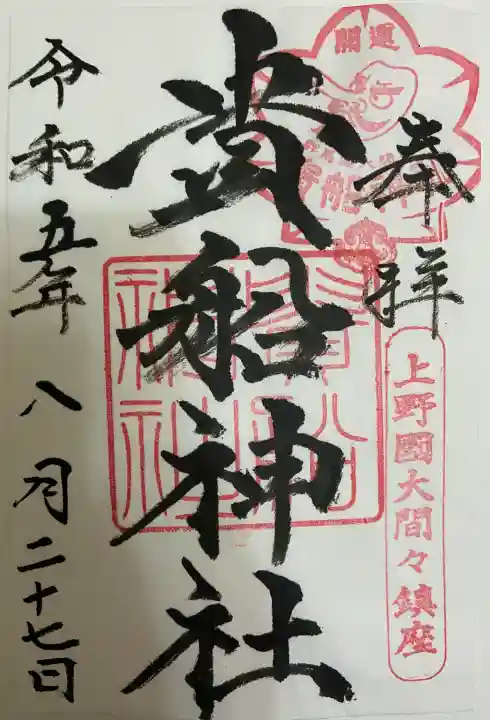 開運
奉拝
上野國大間々鎮座
貴船神社
貴船
神社
令和五年八月二十七日